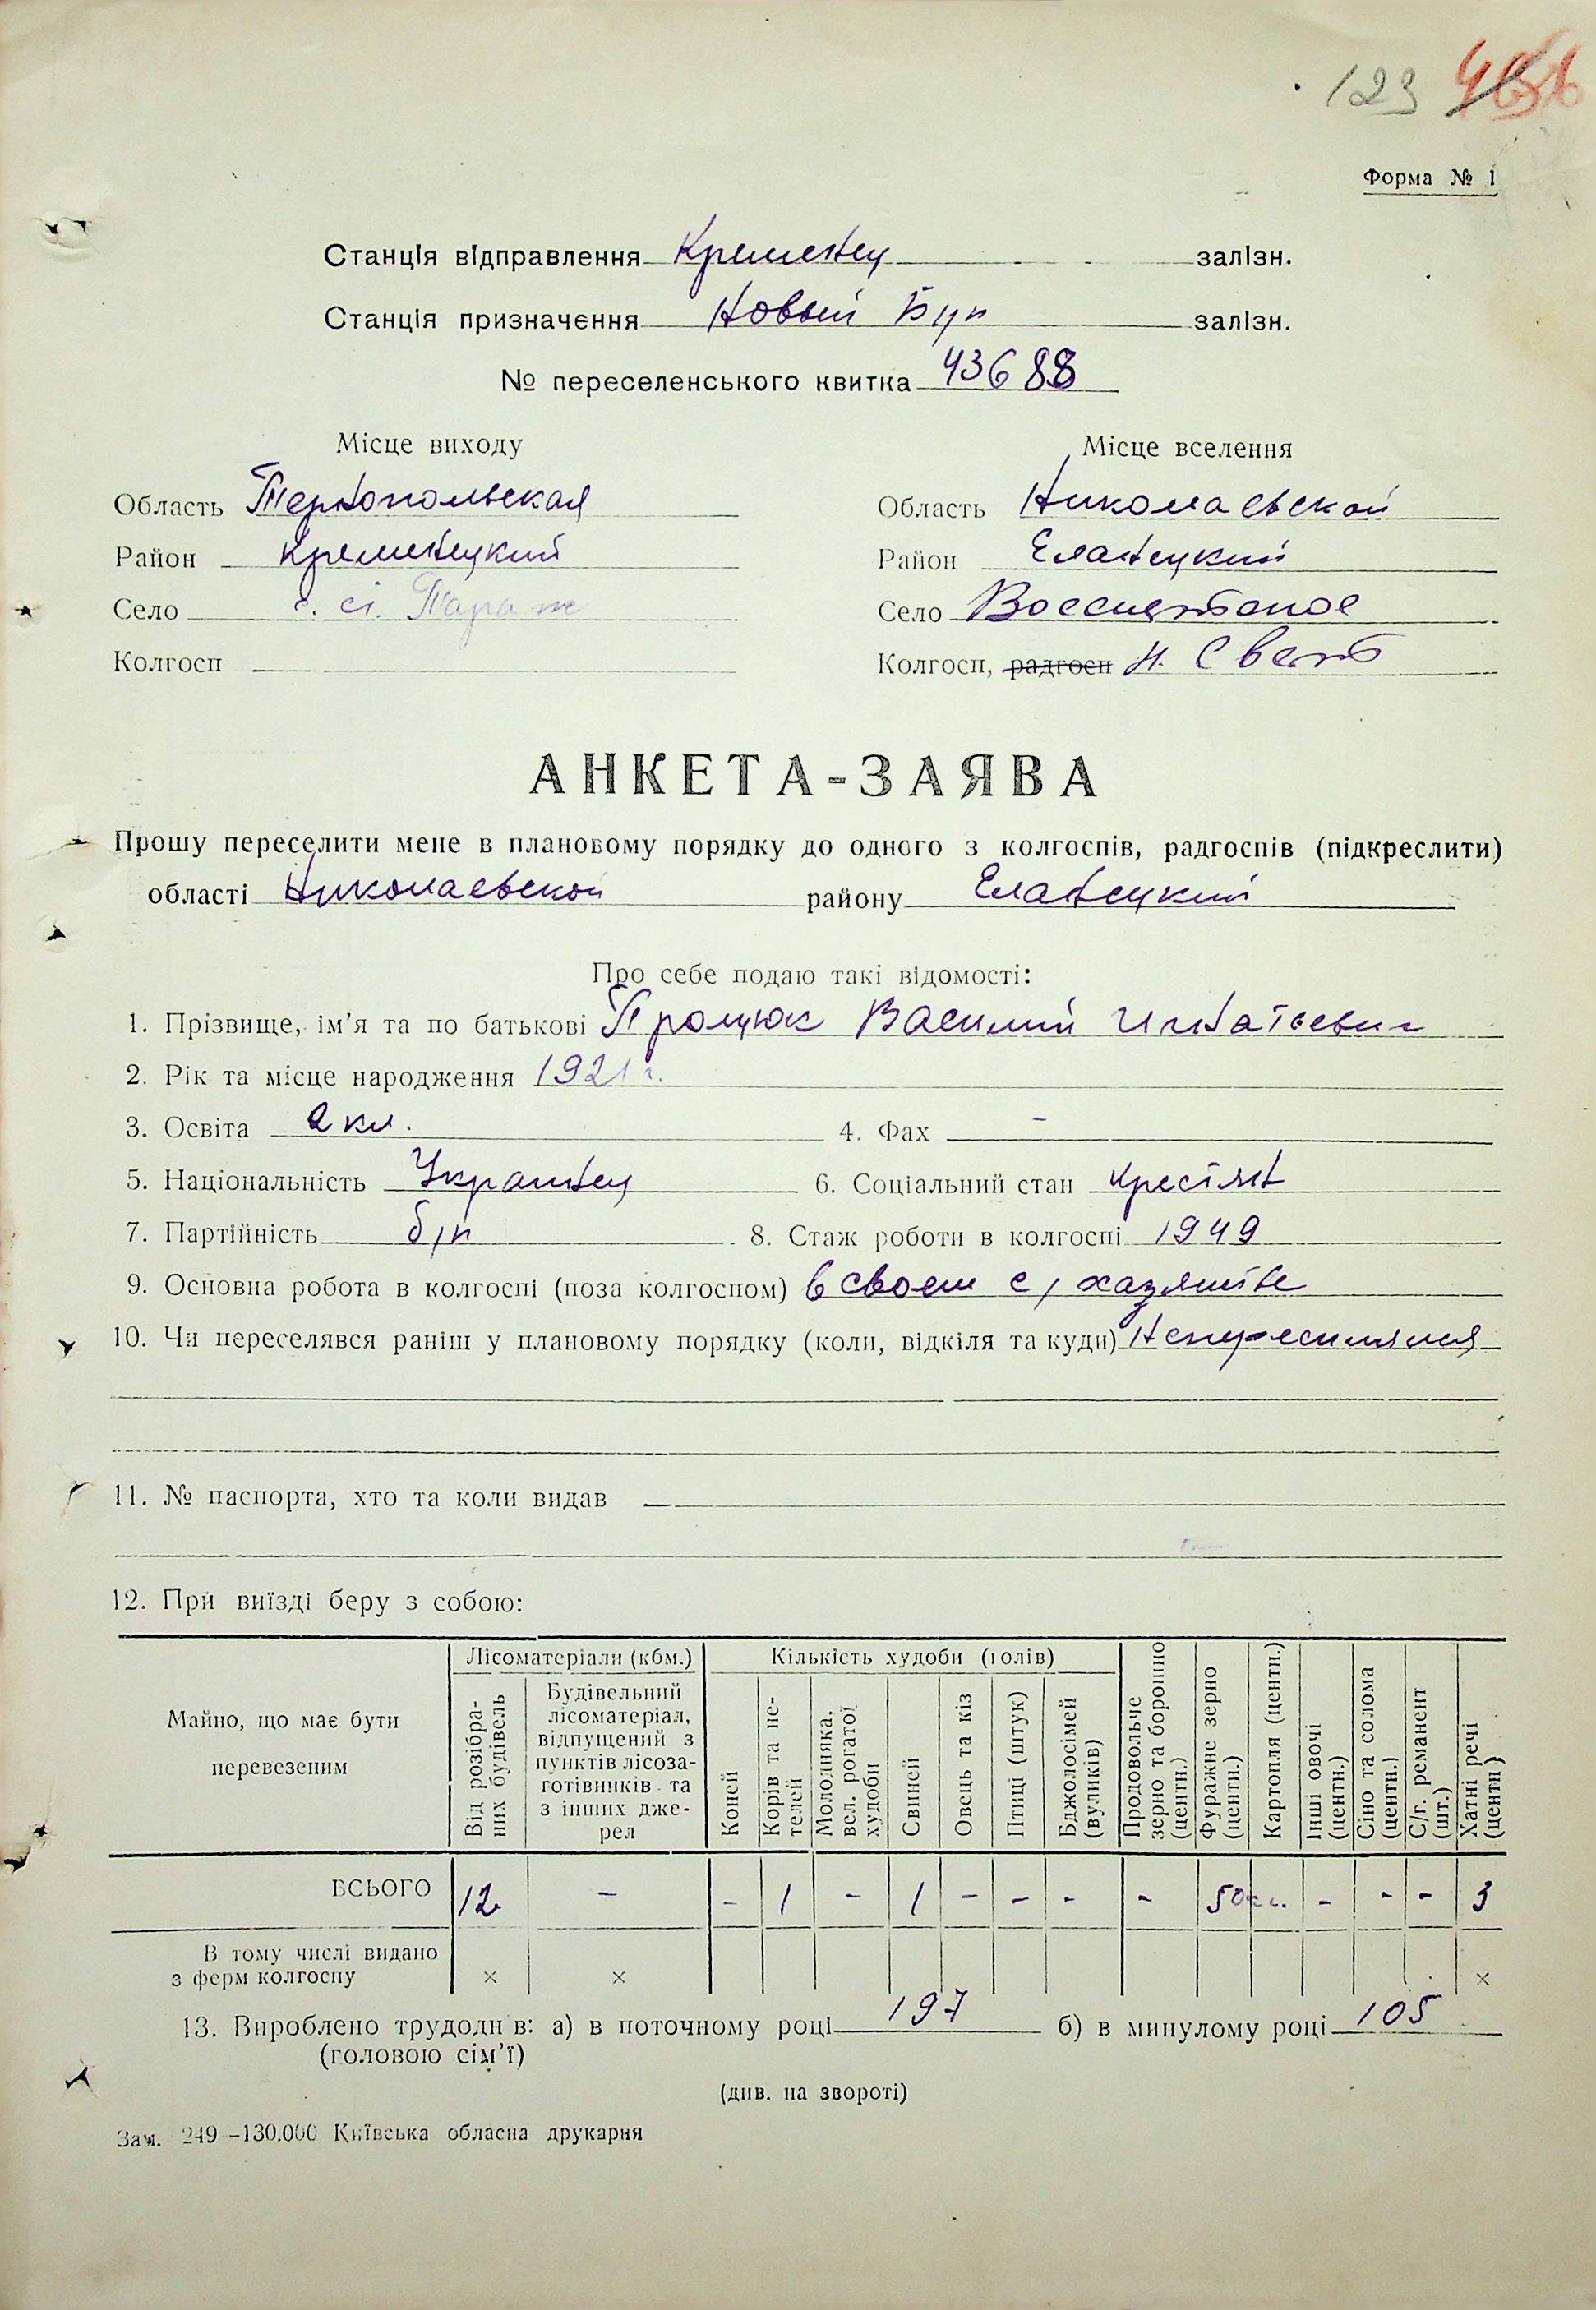 123
Форма № 1
Станція відправлення Кременец залізн.
Станція призначення Новый Буг залізн.
№ переселенського квитка 43688
Місце виходу Місце вселення
Область Тернопольская Область Николаевской
Район Кременецкий Район Еланецкий
Село Село
Колгосп Колгосп, радгосп Н. Свет
АНКЕТА-ЗАЯВА
Прошу переселити мене в плановому порядку до одного з колгоспів, радгоспів (підкреслити)
області Николаевской району Еланецкий
Про себе подаю такі відомості:
1. Прізвище, ім’я та по батькові Процюк Василий Игнатьевич
2. Рік та місце народження 1921 г.
3. Освіта 2 кл. 4. Фах -
5. Національність Украинец 6. Соціальний стан Крестян
7. Партійність б/п 8. Стаж роботи в колгоспі 1949
9. Основна робота в колгоспі (поза колгоспом) в своем с/хазяистве
10. Чи переселявся раніш у плановому порядку (коли, відкіля та куди)
11. № паспорта, хто та коли видав
12. При виїзді беру з собою:
Майно, що має бути перевезеним
Лісоматеріали (кбм.) Кількість худоби (голів)
Від розібраних будівель
Будівельний лісоматеріал, відпущений з пунктів лісозаготівників та з інших джерел
Коней
Корів та нетелей
Молодняка, вел. рогатої худоби
Свиней
Овець та кіз
Птиці (штук)
Бджолосімей (вуликів)
Продовольче зерно та борошно (центн.)
Фуражне зерно (центн.)
Картопля (центн.)
Інші овочі (центн.)
Сіно та солома (центн.)
С/г. реманент (шт.)
Хатні речі (центн)
ВСЬОГО 12 - - 1 - 1 - - - - 50 кг. - - - 3
В тому числі видано
з ферм колгоспу × × ×
13. Вироблено трудоднів: а) в поточному році 197 б) в минулому році 105
(головою сім’ї)
(див. на звороті)
Зам. 249—130.000 Київська обласна друкарня